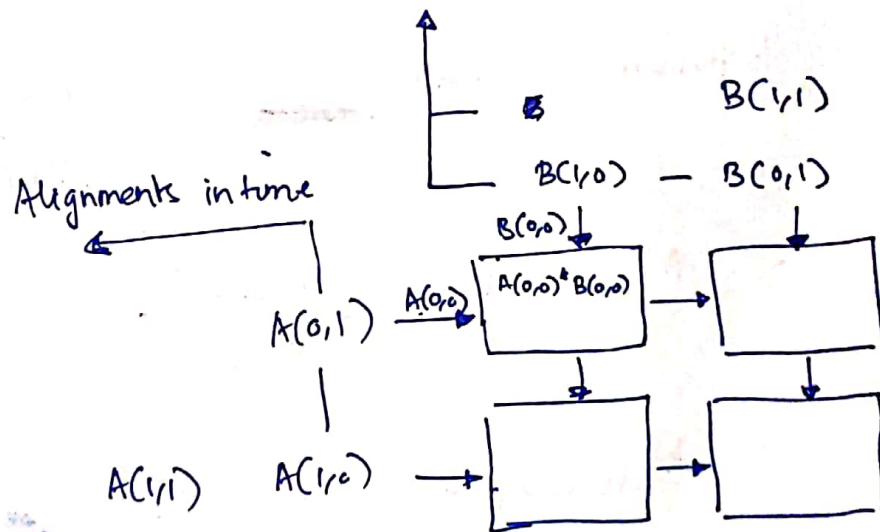 B(1,1)
B(1,0) — B(0,1)
Alignments in time
B(0,0)
A(0,0) A(0,0)*B(0,0)
A(0,1)
A(1,1) A(1,0)